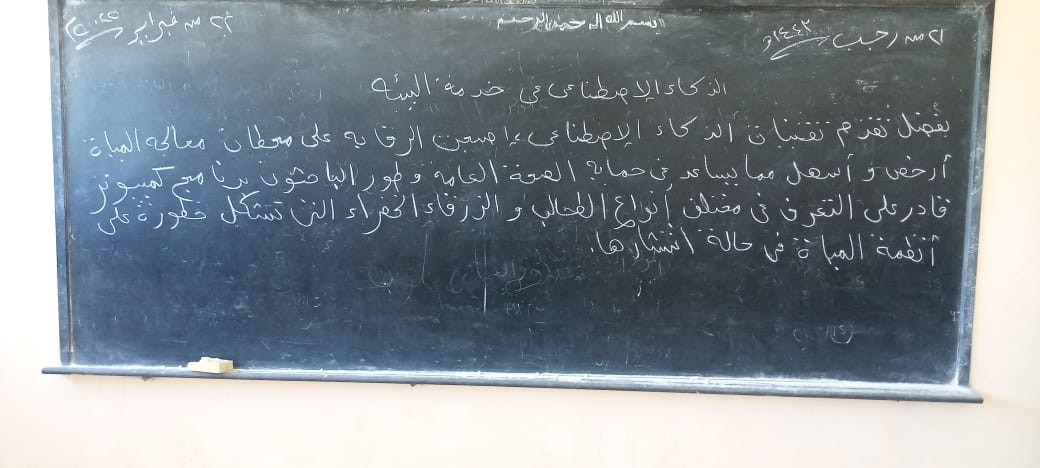 "بسم الله الرحمن الرحيم"
٢١ من رجب ١٤٤٢ و
٢١ من فبراير
الذكاء الإصطناعي في خدمة البيئه
بفضل تقدم تقنيات الذكاء الإصطناعي، اصبحت الرقابه على محطات معالجه المياة
أرخص و أسهل مما يساعد في حماية الصحة العامه وطور الباحثون برنامج كمبيوتر
قادر على التعرف في مختلف أنواع الطحالب و الزرقاء الخضراء التي تشكل خطورة على
أنظمة المياة في حالة انتشارها.